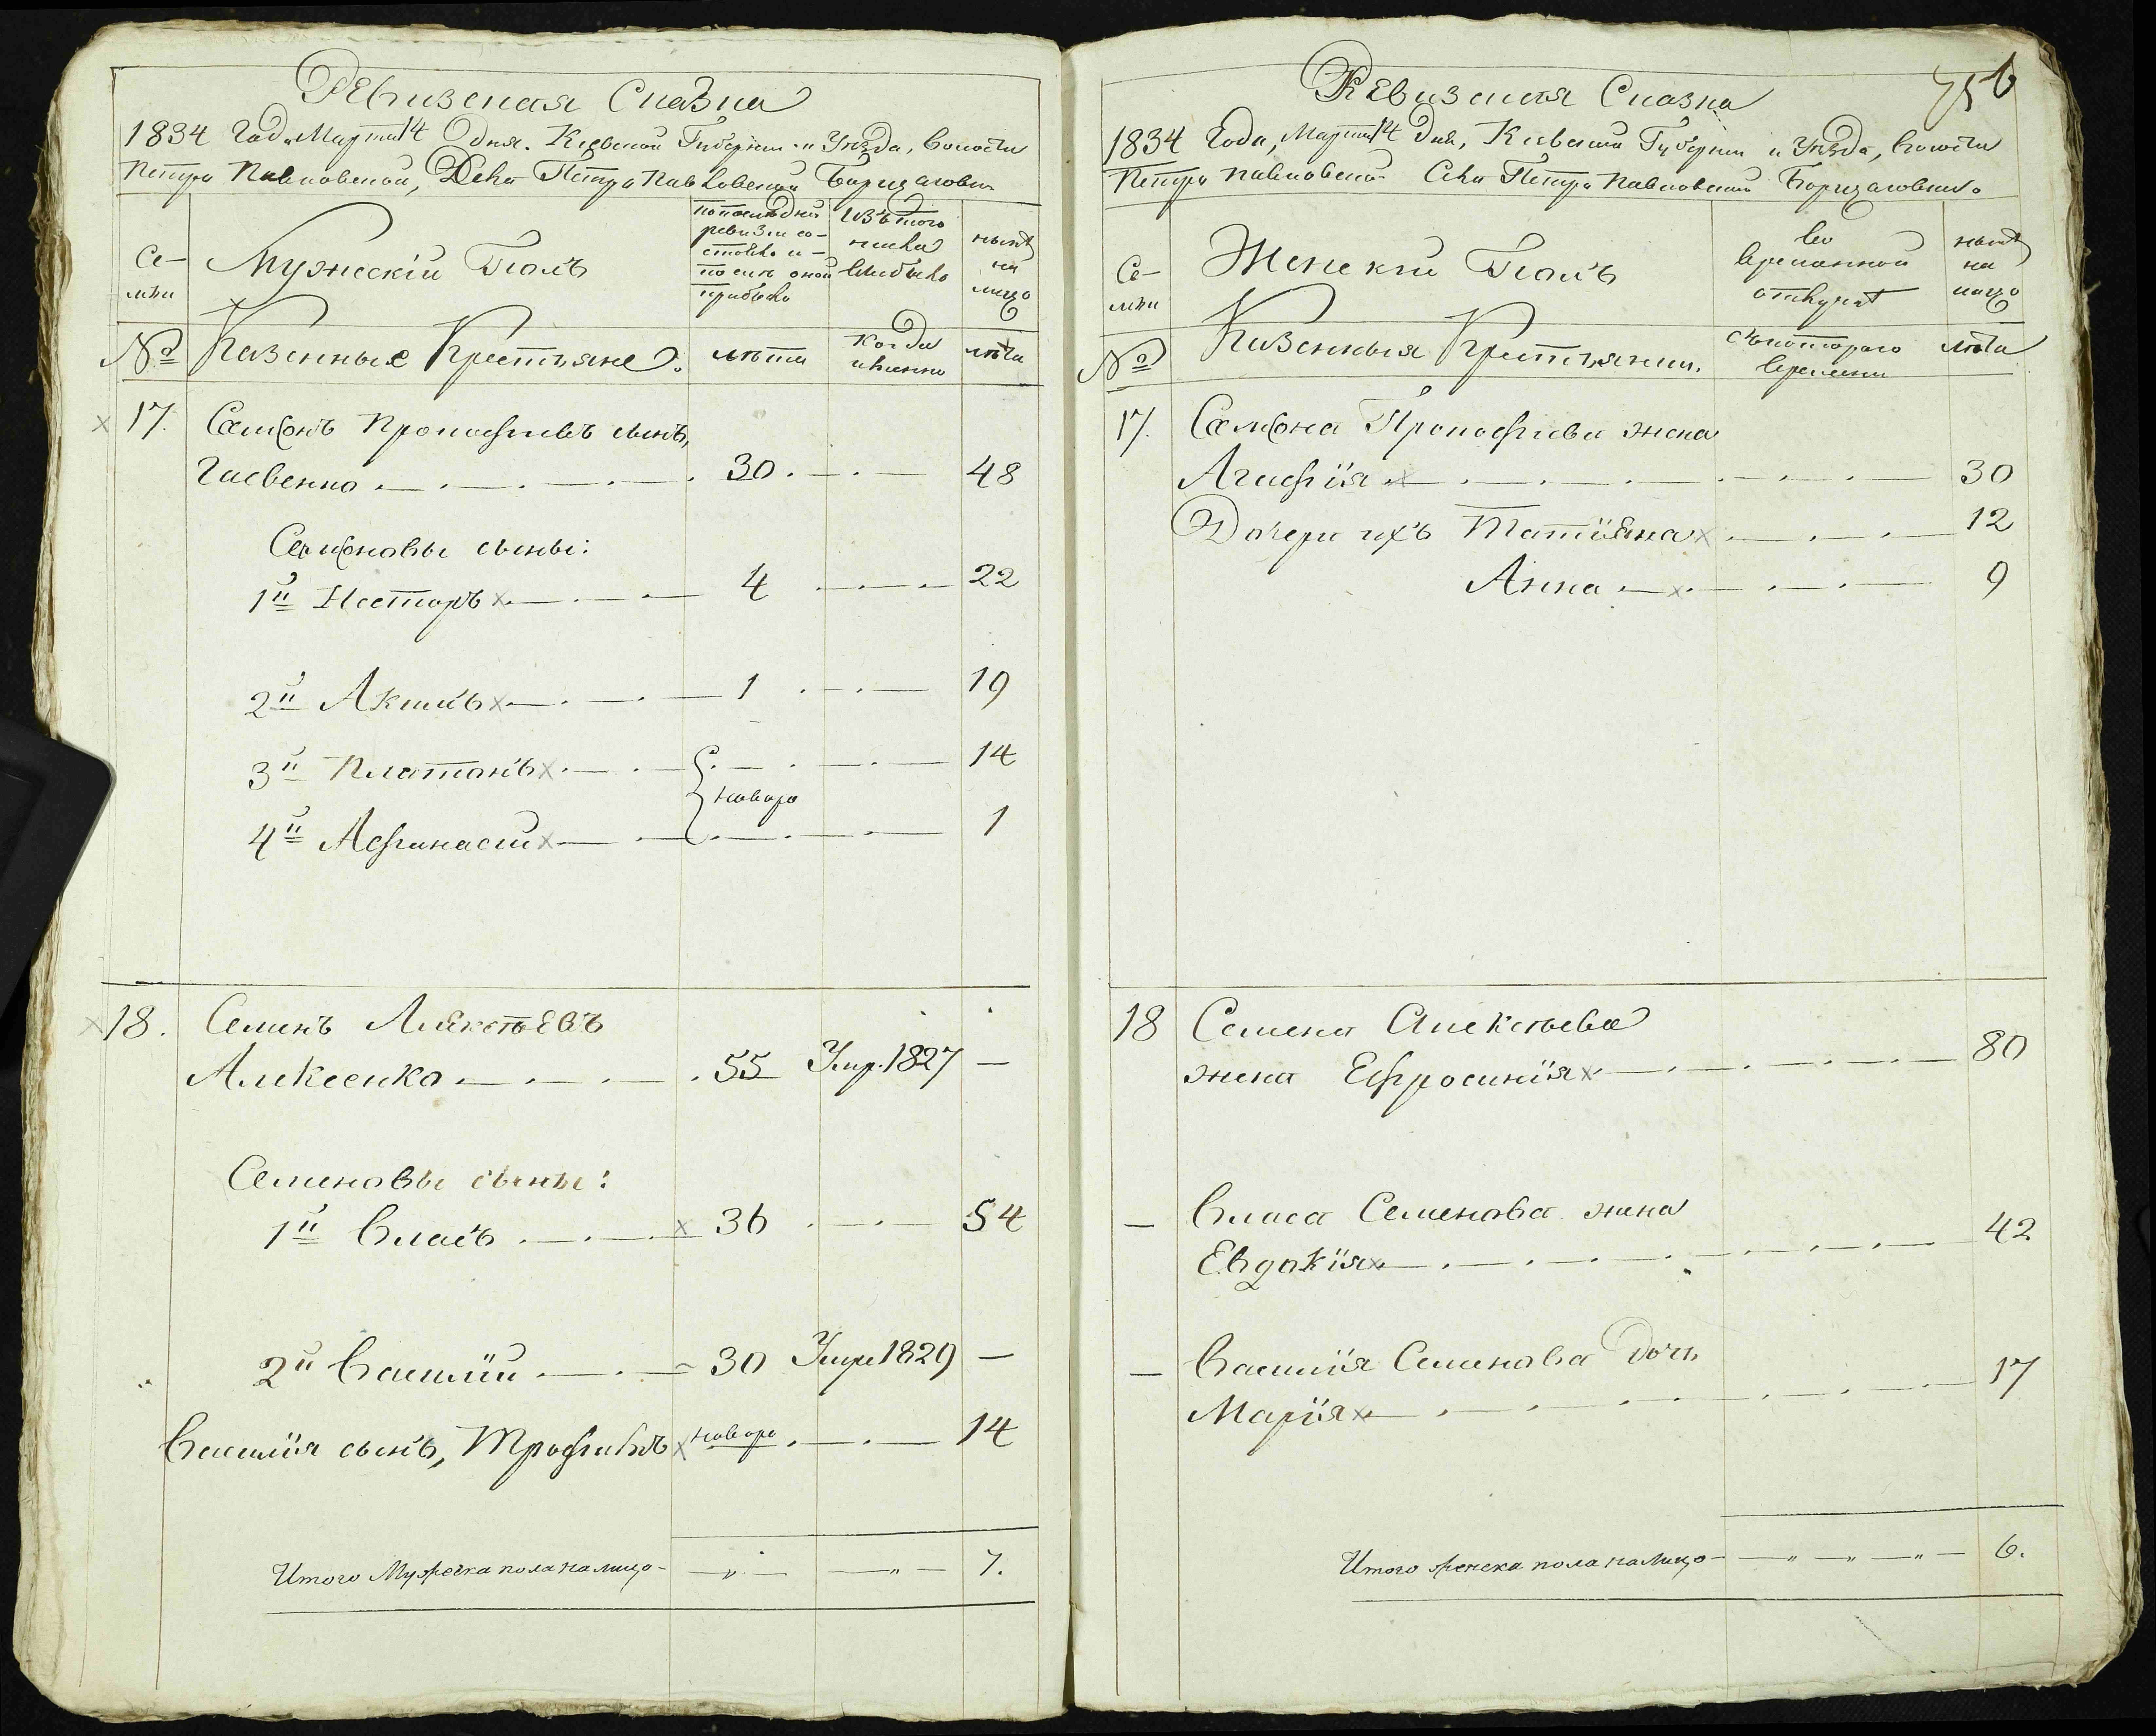 Ревизская Сказка
1834 года Марта 14 дня. Кіевской Губерніи и Уѣзда, волости
Петро Павловской, Села Петро Павловской Борщаговки
Се-
мьи
Мужескій Полъ
по последней
ревизіи со-
стояло и
после оной
прибыло
Изъ того
числа
выбыло
нынѣ
на
лицо
№
Казенные Крестьяне.
лѣта
Когда
именно
лѣта
17. Самсонъ Прокофиевъ сынъ,
Гасвенко 30. 48
Самсоновы сыны:
1й Несторъ 4 22
2й Акимъ 1 19
3й Платонъ 14
новоро
4й Афанасий 1
18. Семенъ Алексѣевъ
Алексенко 55 Умр. 1827 —
Семеновы сыны:
1й Власъ 36 54
2й Василій 30 Умре 1829 —
Василія сынъ, Трофимъ новоро 14
Итого Мужеска пола на лицо 7.
756
Ревизская Сказка
1834 года, Марта 14 дня, Кіевской Губерніи и Уѣзда, волости
Петро Павловской Села Петро Павловской Борщаговки.
Се-
мьи
Женскій Полъ
во
временной
отлучкѣ
нынѣ
на
лицо
№
Казенныя Крестьянки.
съ котораго
времени
лѣта
17. Самсона Прокофиева жена
Агафія 30
Дочери ихъ Татіяна 12
Анна 9
18 Семена Алексѣева
жена Ефросинія 80
— Власа Семенова жена
Евдокія 42
— Василія Семенова дочь
Марія 17
Итого женска пола на лицо 6.